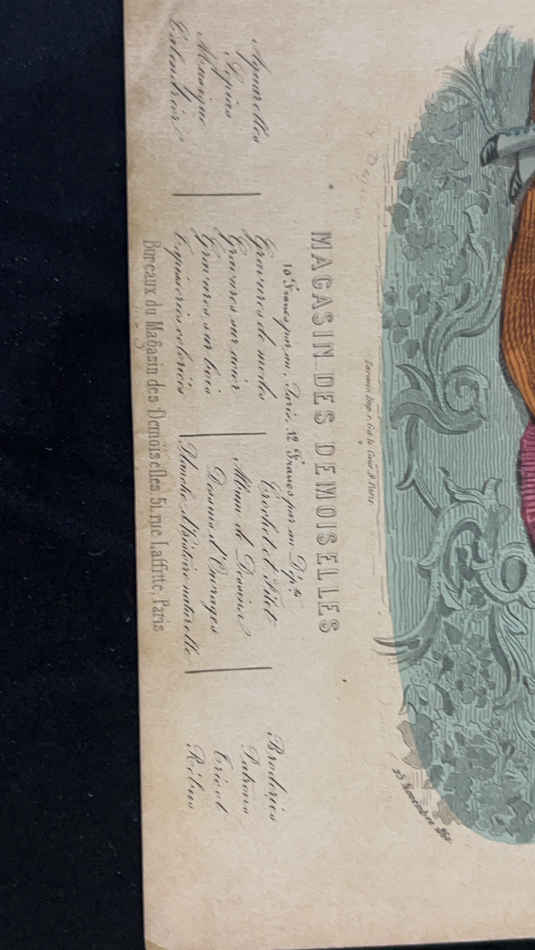 25 Novembre
MAGASIN DES DEMOISELLES
10 Francs par an, Paris, 12 Francs par an Dép.ts
Aquarelles
Sépias
Musique
Calendrier
Gravures de modes
Gravures sur acier
Gravures sur bois
Tapisseries coloriées
Crochet et Filet
Album de Dessins
Dessins d'Ouvrages
Planche d'histoire naturelle
Broderies
Patrons
Tricot
Rébus
Bureaux du Magasin des Demoiselles 51, rue Laffitte, Paris